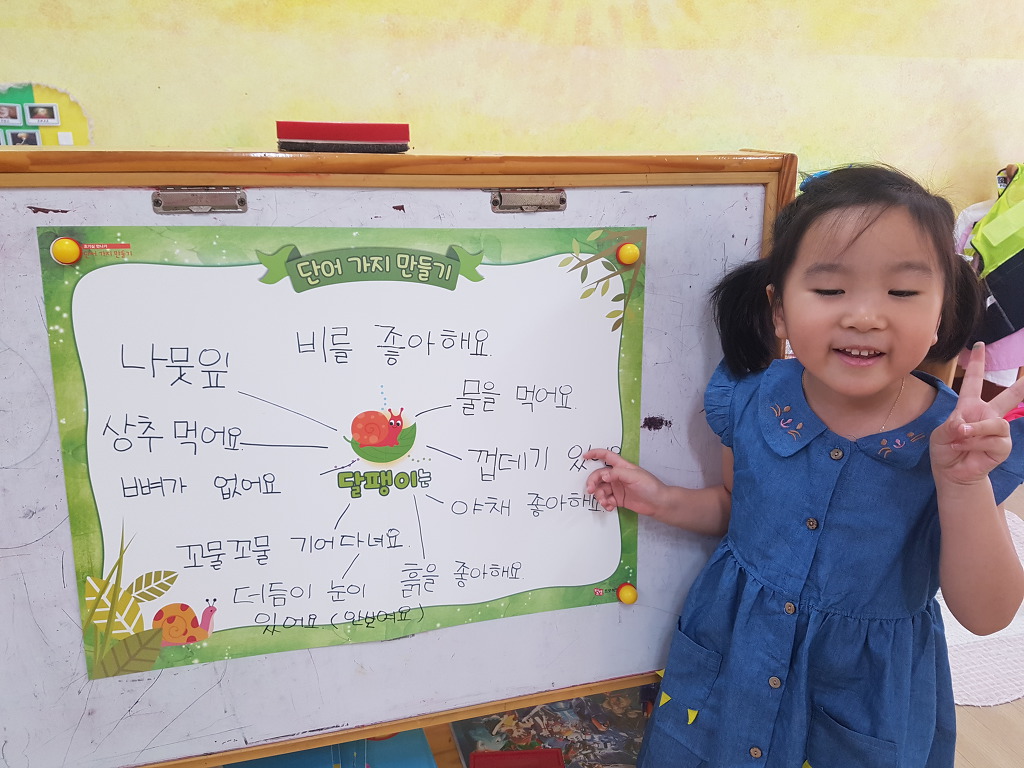 단어 가지 만들기
단어 가지 만들기
비를 좋아해요.
나뭇잎
물을 먹어요.
상추 먹어요
껍데기
달팽이는
뼈가 없어요
야채 좋아해요
꼬물꼬물 기어다녀요.
흙을 좋아해요.
더듬이 눈이
있어요 (안보여요)